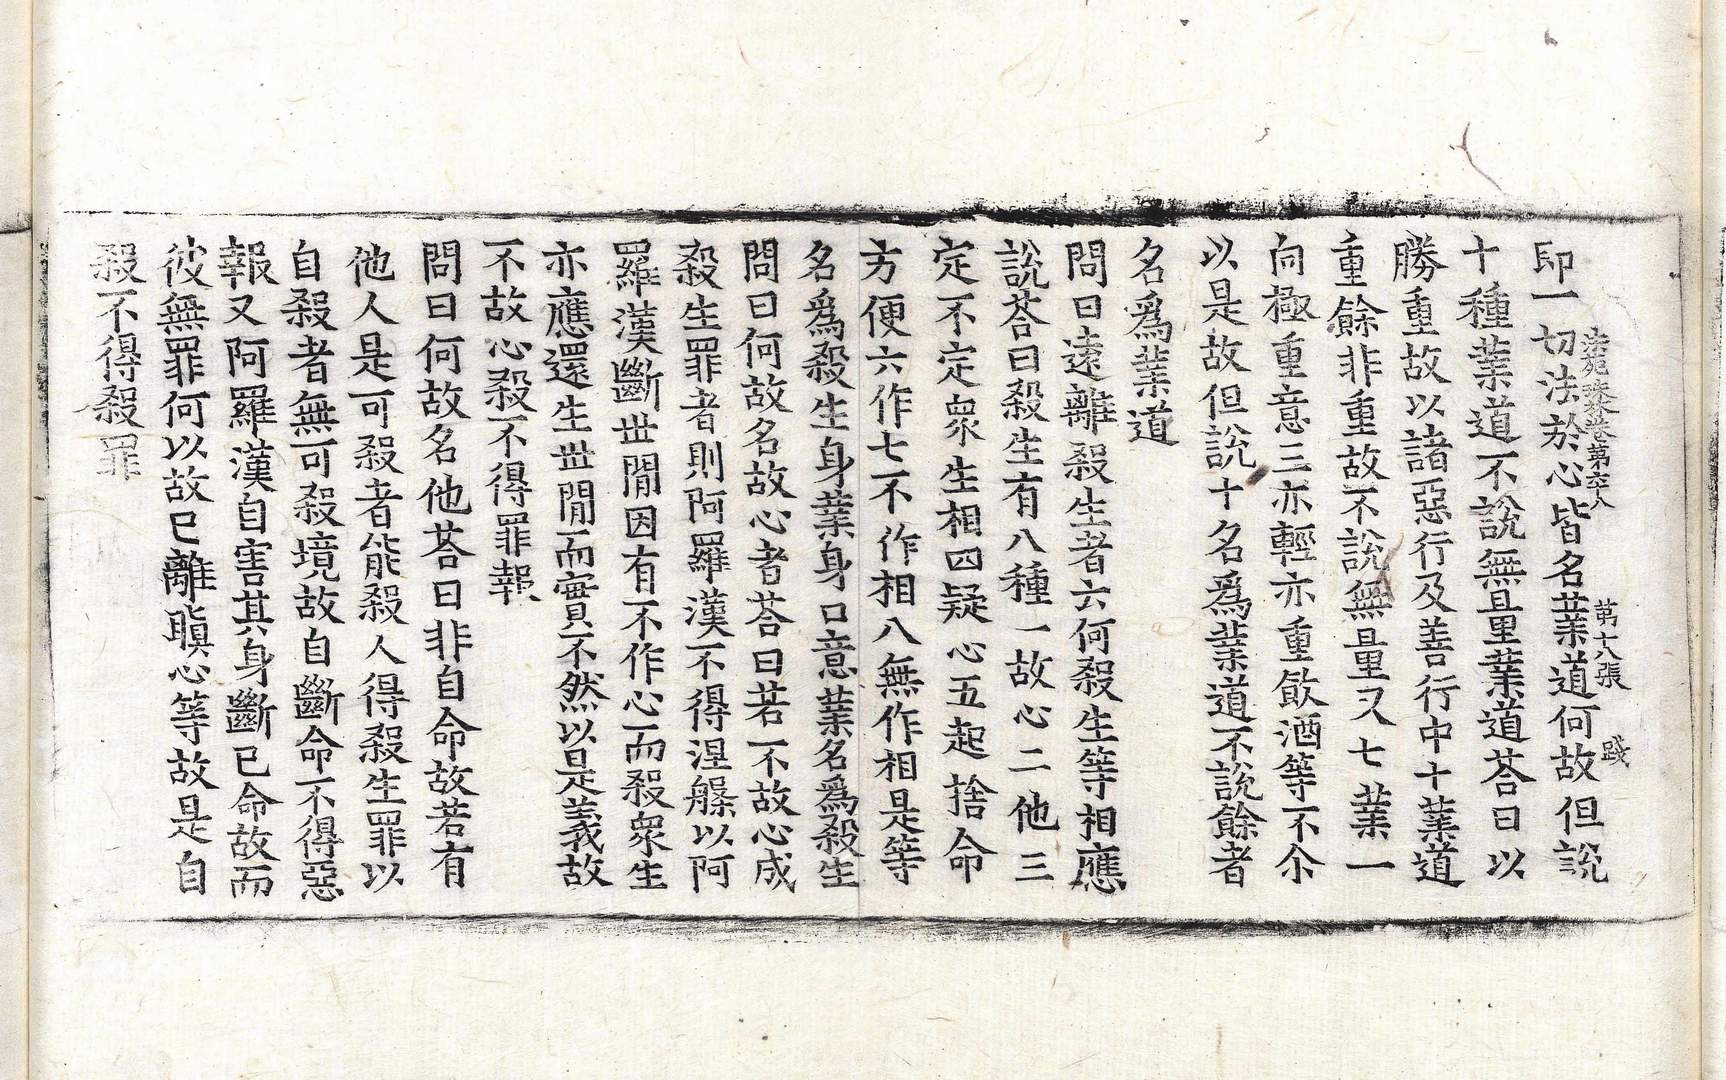 法苑珠林卷第六八 第十八張 踐
即一切法於心皆名業道何故但說
十種業道不說無量業道荅曰以
勝重故以諸惡行及善行中十業道
重餘非重故不說無量又七業一
向極重意三亦輕亦重飲酒等不尒
以是故但說十名爲業道不說餘者
名爲業道
問曰遠離殺生者六何殺生等相應
說荅曰殺生有八種一故心二他三
定不定衆生相四疑心五起捨命
方便六作七不作相八無作相是等
名爲殺生身業身口意業名爲殺生
問曰何故名故心者荅曰若不故心成
殺生罪者則阿羅漢不得涅槃以阿
羅漢斷世間因有不作心而殺衆生
亦應還生世間而實不然以是義故
不故心殺不得罪報
問曰何故名他荅曰非自命故若有
他人是可殺者能殺人得殺生罪以
自殺者無可殺境故自斷命不得惡
報又阿羅漢自害其身斷已命故而
彼無罪何以故已離瞋心等故是自
殺不得殺罪